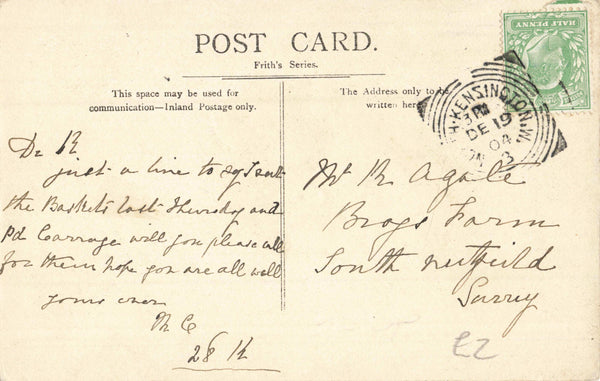 POST CARD.
Frith's Series.
This space may be used for
communication—Inland Postage only.
The Address only to be
written here
HALF PENNY
TH·KENSINGTON.W.
3 PM
DE 19
04
Dr R
just a line to say I sent
the Baskets last Thursday and
Pd Carrage will you please call
for them hope you are all well
yours ever
28 R
Mr R Agate
Brogs Farm
South nutfield
Surrey
£2